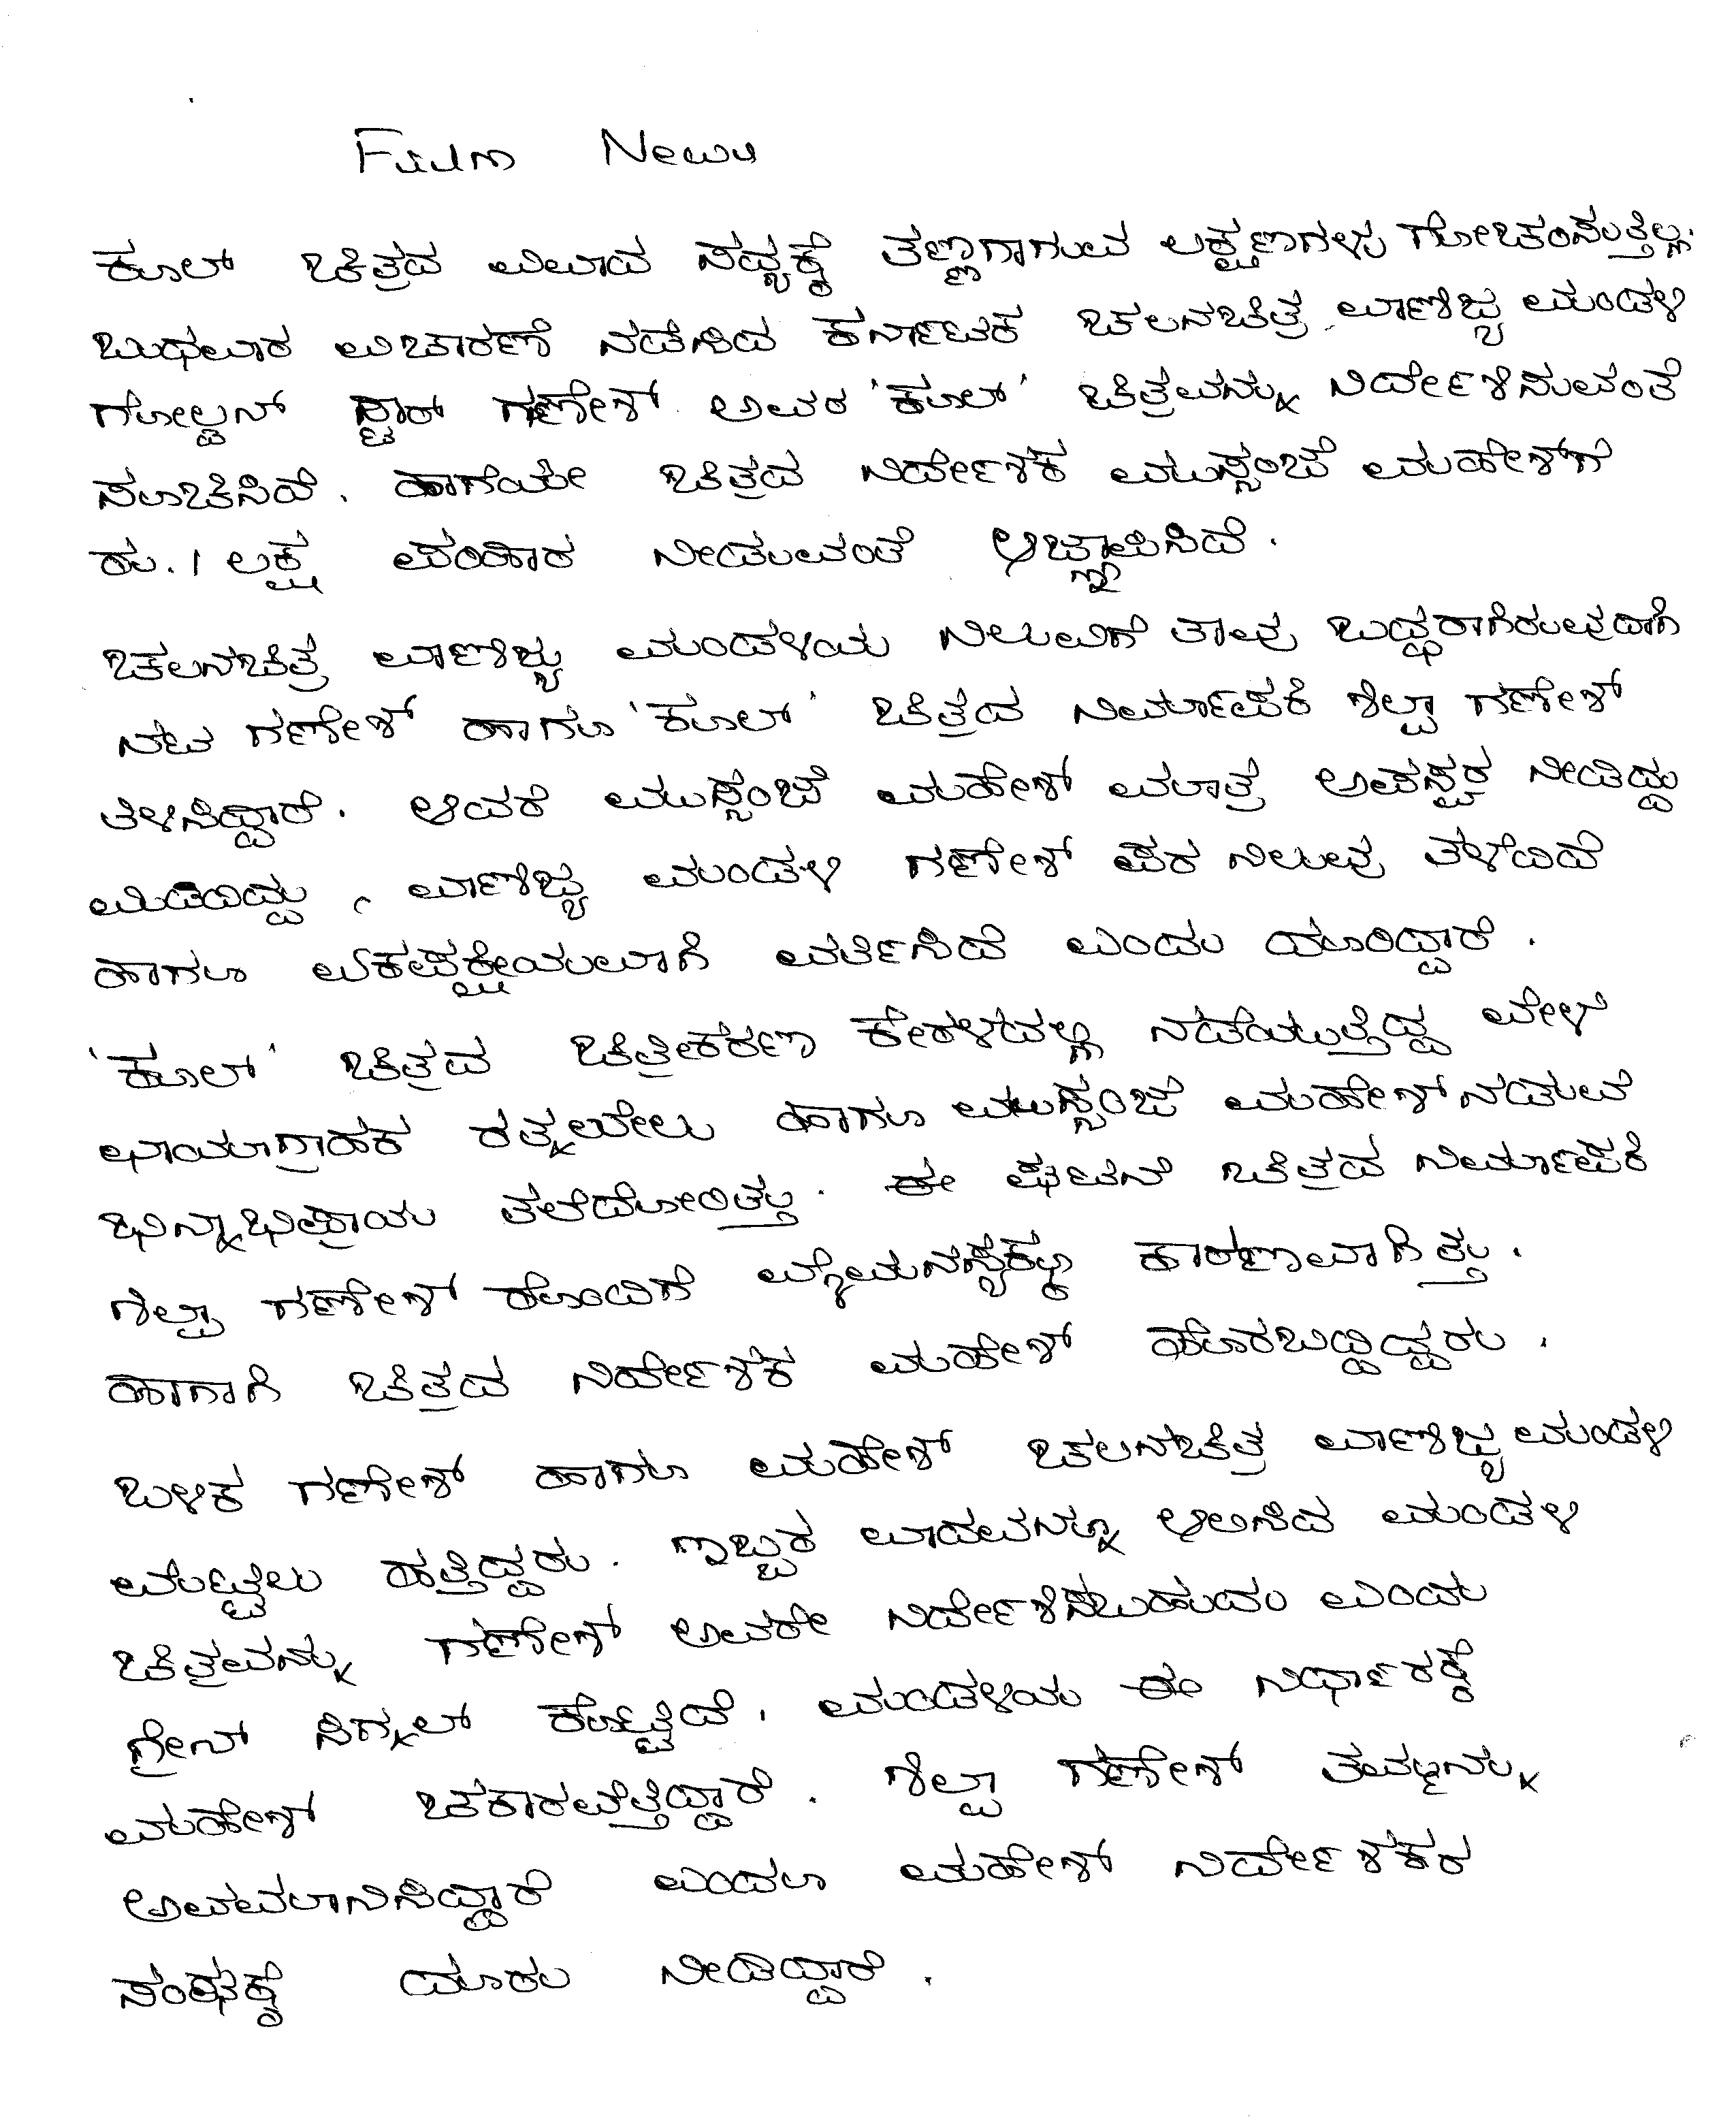 Film News
ಕೂಲ್ ಚಿತ್ರದ ವಿವಾದ ಸದ್ಯಕ್ಕೆ ತಣ್ಣಗಾಗುವ ಲಕ್ಷಣಗಳು ಗೋಚರಿಸುತ್ತಿಲ್ಲ.
ಬುಧವಾರ ವಿಚಾರಣೆ ನಡೆಸಿದ ಕರ್ನಾಟಕ ಚಲನಚಿತ್ರ ವಾಣಿಜ್ಯ ಮಂಡಳಿ
ಗೋಲ್ಡನ್ ಸ್ಟಾರ್ ಗಣೇಶ್ ಅವರ 'ಕೂಲ್' ಚಿತ್ರವನ್ನು ನಿರ್ದೇಶಿಸುವಂತೆ
ಸೂಚಿಸಿದೆ. ಹಾಗೆಯೇ ಚಿತ್ರದ ನಿರ್ದೇಶಕ ಮುಸ್ಸಂಜೆ ಮಹೇಶ್‌ಗೆ
ರು.1 ಲಕ್ಷ ಪರಿಹಾರ ನೀಡುವಂತೆ ಆಜ್ಞಾಪಿಸಿದೆ.
ಚಲನಚಿತ್ರ ವಾಣಿಜ್ಯ ಮಂಡಳಿಯ ನಿಲುವಿಗೆ ತಾವು ಬದ್ಧರಾಗಿರುವುದಾಗಿ
ನಟ ಗಣೇಶ್ ಹಾಗೂ 'ಕೂಲ್' ಚಿತ್ರದ ನಿರ್ಮಾಪಕಿ ಶಿಲ್ಪಾ ಗಣೇಶ್
ತಿಳಿಸಿದ್ದಾರೆ. ಆದರೆ ಮುಸ್ಸಂಜೆ ಮಹೇಶ್ ಮಾತ್ರ ಅಪಸ್ವರ ನೀಡಿದ್ದು
ಮಿಡಿದಿದ್ದು, ವಾಣಿಜ್ಯ ಮಂಡಳಿ ಗಣೇಶ್ ಪರ ನಿಲುವು ತಳೆದಿದೆ
ಹಾಗೂ ಏಕಪಕ್ಷೀಯವಾಗಿ ವರ್ತಿಸಿದೆ ಎಂದು ದೂರಿದ್ದಾರೆ.
'ಕೂಲ್' ಚಿತ್ರದ ಚಿತ್ರೀಕರಣ ಕೇರಳದಲ್ಲಿ ನಡೆಯುತ್ತಿದ್ದ ವೇಳೆ
ಛಾಯಾಗ್ರಾಹಕ ರತ್ನವೇಲು ಹಾಗೂ ಮುಸ್ಸಂಜೆ ಮಹೇಶ್ ನಡುವೆ
ಭಿನ್ನಾಭಿಪ್ರಾಯ ತಲೆದೋರಿತ್ತು. ಈ ಘಟನೆ ಚಿತ್ರದ ನಿರ್ಮಾಪಕಿ
ಶಿಲ್ಪಾ ಗಣೇಶ್ ರೊಂದಿಗೆ ವೈಮನಸ್ಯಕ್ಕೂ ಕಾರಣವಾಗಿತ್ತು.
ಹಾಗಾಗಿ ಚಿತ್ರದ ನಿರ್ದೇಶಕ ಮಹೇಶ್ ಹೊರಬಿದ್ದಿದ್ದರು.
ಬಳಿಕ ಗಣೇಶ್ ಹಾಗೂ ಮಹೇಶ್ ಚಲನಚಿತ್ರ ವಾಣಿಜ್ಯ ಮಂಡಳಿ
ಮೆಟ್ಟಿಲು ಹತ್ತಿದ್ದರು. ಇಬ್ಬರ ವಾದವನ್ನೂ ಆಲಿಸಿದ ಮಂಡಳಿ
ಚಿತ್ರವನ್ನು ಗಣೇಶ್ ಅವರೇ ನಿರ್ದೇಶಿಸಬಹುದು ಎಂದು
ಗ್ರೀನ್ ಸಿಗ್ನಲ್ ಕೊಟ್ಟಿದೆ. ಮಂಡಳಿಯ ಈ ನಿರ್ಧಾರಕ್ಕೆ
ಮಹೇಶ್ ಚಕಾರವೆತ್ತಿದ್ದಾರೆ. ಶಿಲ್ಪಾ ಗಣೇಶ್ ತಮ್ಮನ್ನು
ಅವಮಾನಿಸಿದ್ದಾರೆ ಎಂದೂ ಮಹೇಶ್ ನಿರ್ದೇಶಕರ
ಸಂಘಕ್ಕೆ ದೂರು ನೀಡಿದ್ದಾರೆ.